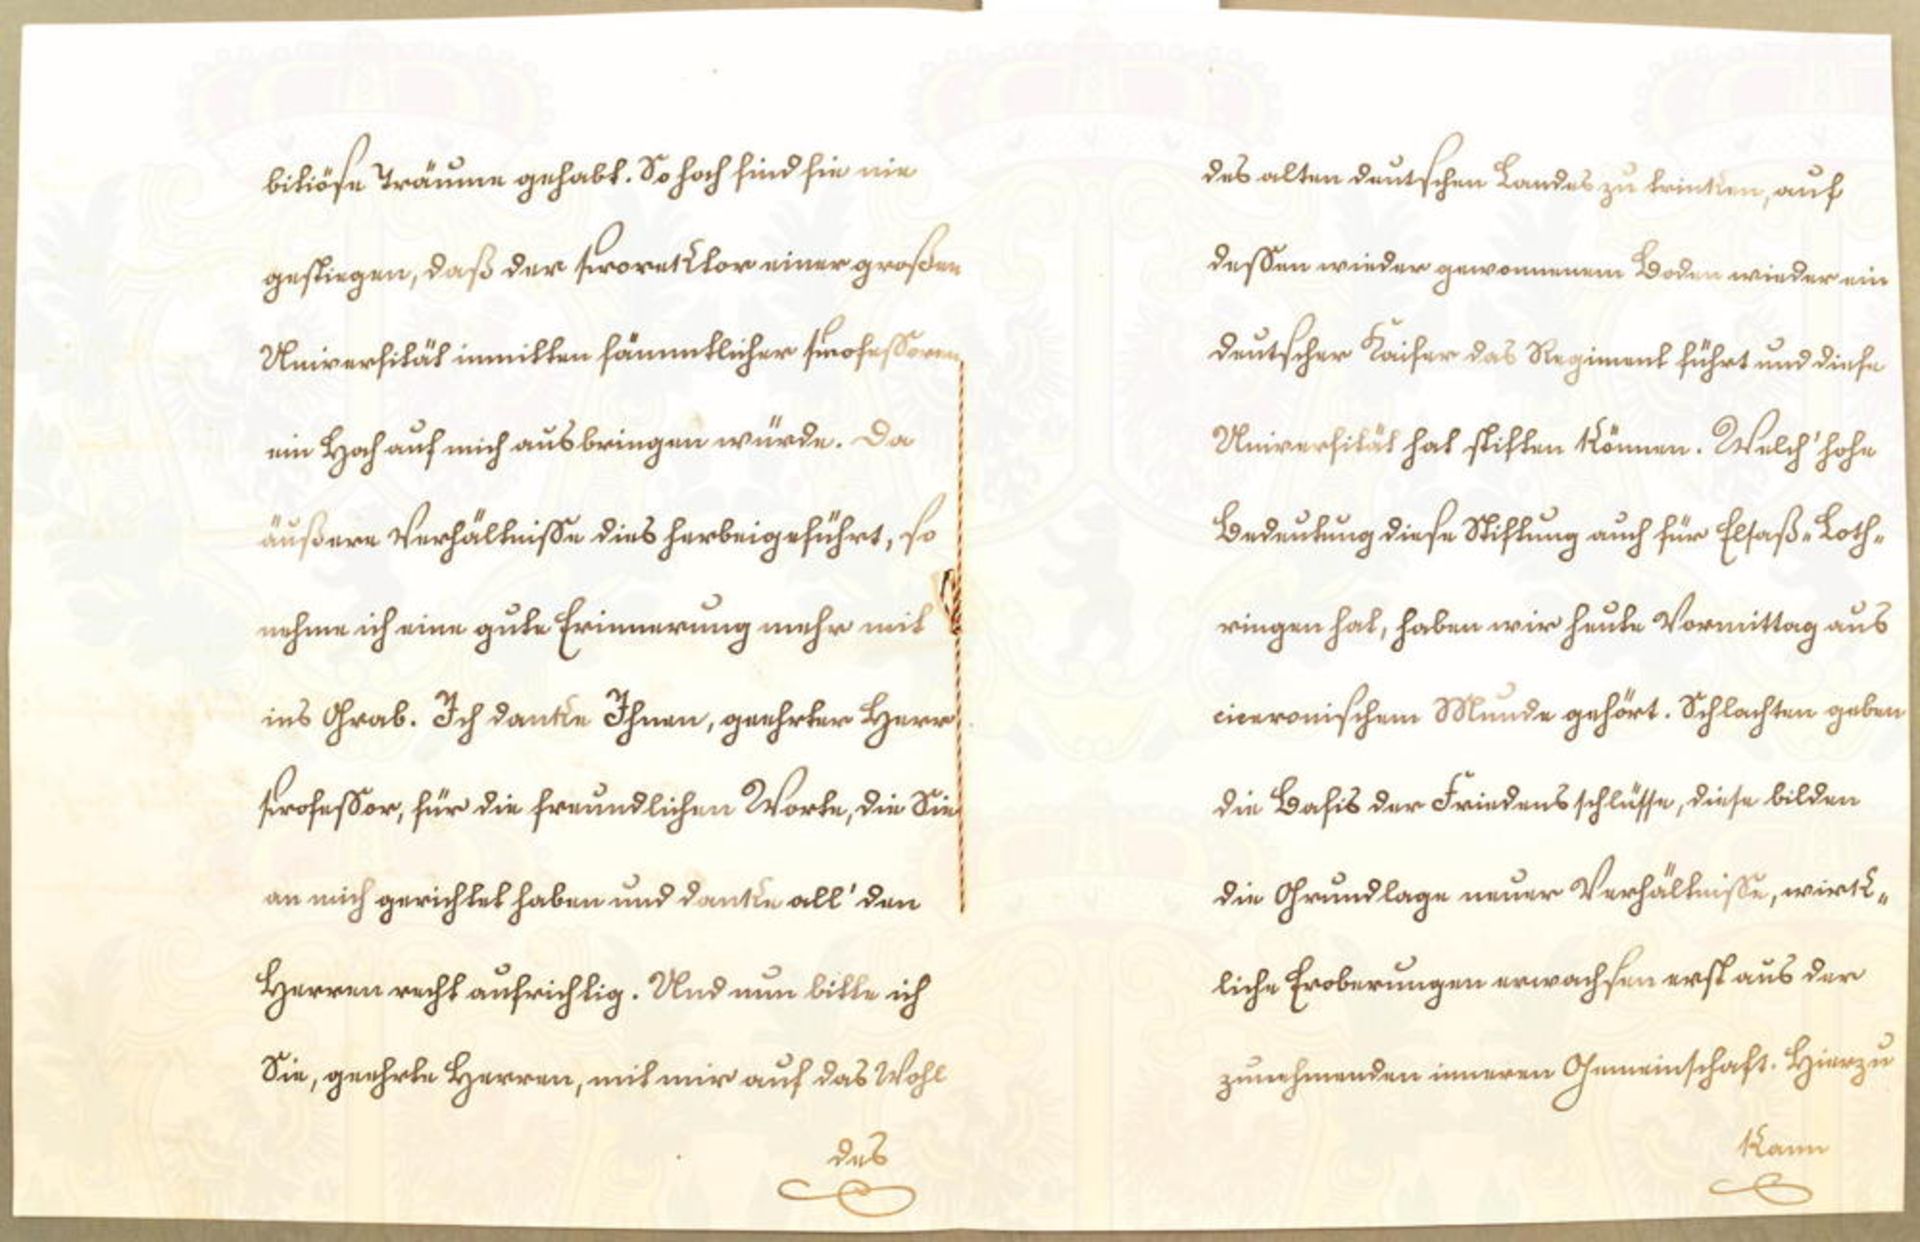 bitiöse Träume gehabt. So hoch sind sie nie
gestiegen, daß der Prorektor einer großen
Universität inmitten sämmtlicher Professoren
ein Hoch auf mich ausbringen würde. Da
äußere Verhältnisse dies herbeigeführt, so
nehme ich eine gute Erinnerung mehr mit
ins Grab. Ich danke Ihnen, geehrter Herr
Professor, für die freundlichen Worte, die Sie
an mich gerichtet haben und danke all' den
Herren recht aufrichtig. Und nun bitte ich
Sie, geehrte Herren, mit mir auf das Wohl
des
des alten deutschen Landes zu trinken, auf
dessen wieder gewonnenem Boden wieder ein
deutscher Kaiser das Regiment führt und diese
Universität hat stiften können. Welch' hohe
Bedeutung diese Stiftung auch für Elsaß-Loth-
ringen hat, haben wir heute Vormittag aus
ciceronischem Munde gehört. Schlachten geben
die Basis der Friedensschlüsse, diese bilden
die Grundlage neuer Verhältnisse, wirk-
liche Eroberungen erwachsen erst aus der
zunehmenden inneren Gemeinschaft. Hierzu
kann